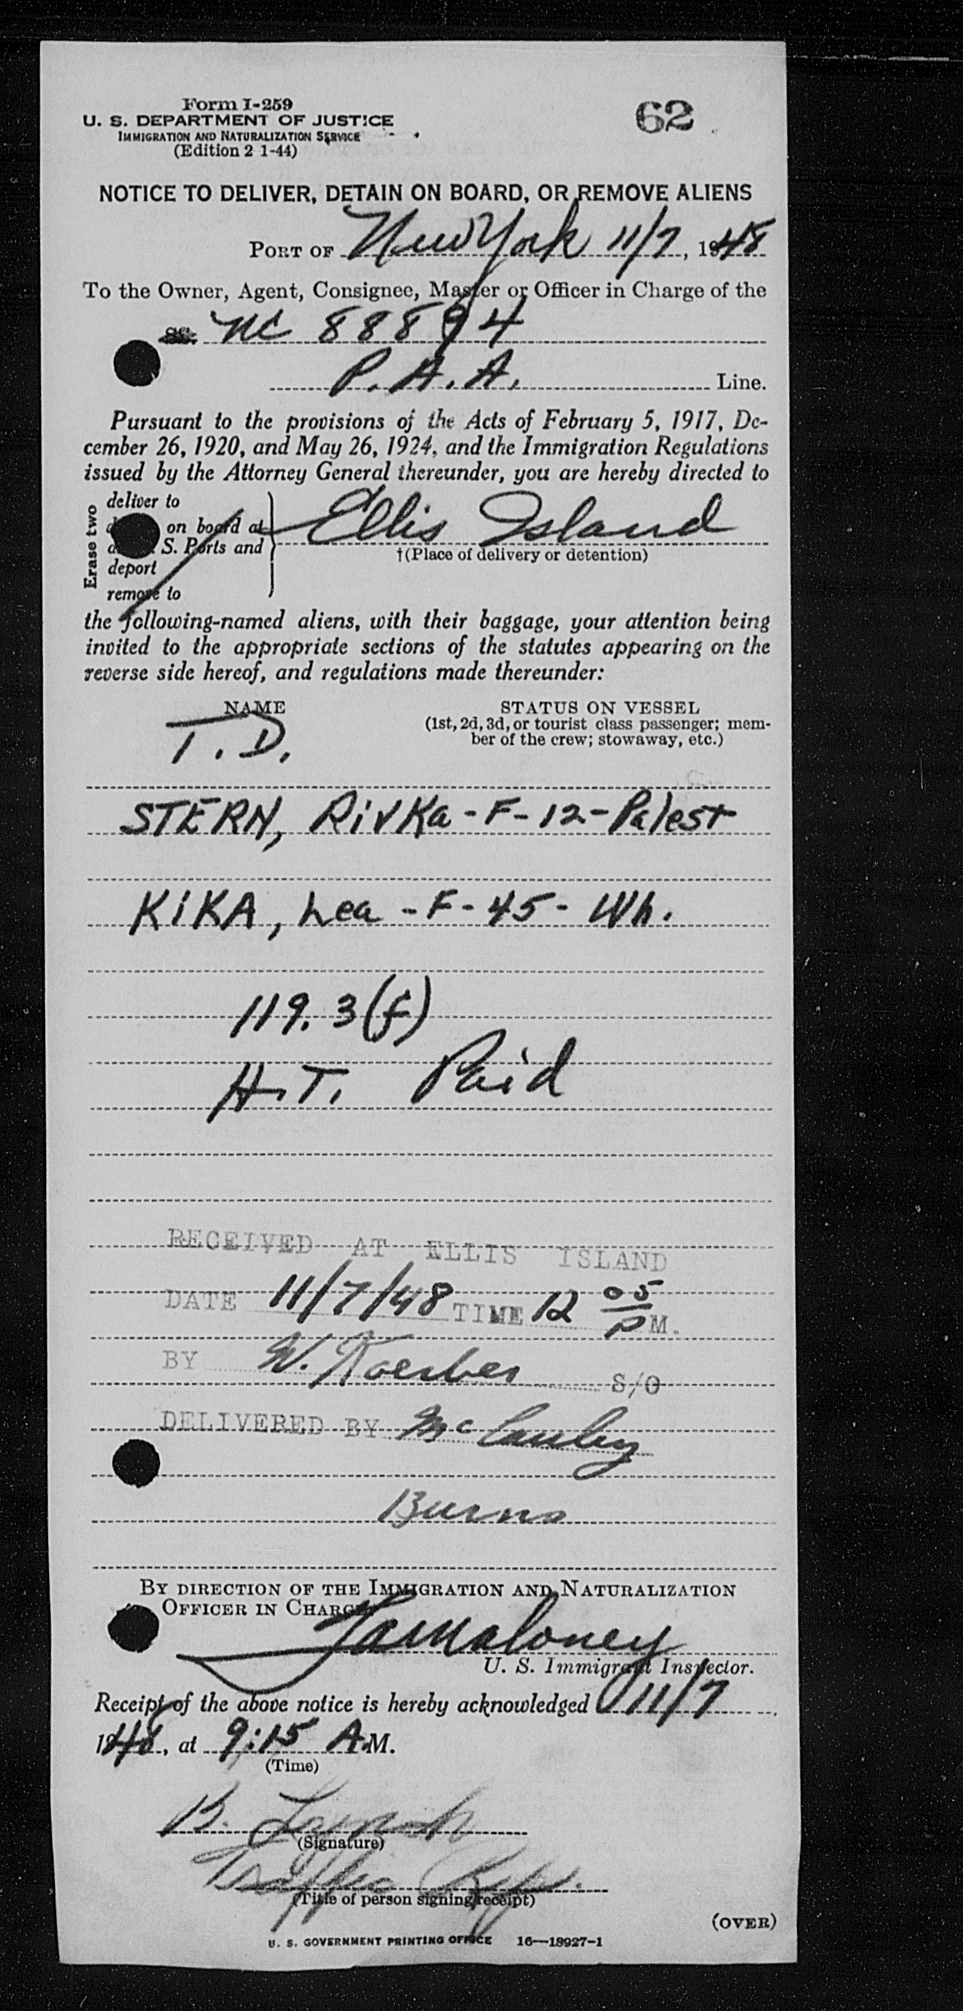 Form I-259
U. S. DEPARTMENT OF JUSTICE
IMMIGRATION AND NATURALIZATION SERVICE
(Edition 2 1-44)
62
NOTICE TO DELIVER, DETAIN ON BOARD, OR REMOVE ALIENS
PORT OF New York 11/7, 1948
To the Owner, Agent, Consignee, Master or Officer in Charge of the
NC 88894
P.A.A. Line.
Pursuant to the provisions of the Acts of February 5, 1917, De-
cember 26, 1920, and May 26, 1924, and the Immigration Regulations
issued by the Attorney General thereunder, you are hereby directed to
Erase two
deliver to
on board at
S. Ports and
deport
remove to
Ellis Island
†(Place of delivery or detention)
the following-named aliens, with their baggage, your attention being
invited to the appropriate sections of the statutes appearing on the
reverse side hereof, and regulations made thereunder:
NAME
STATUS ON VESSEL
(1st, 2d, 3d, or tourist class passenger; mem-
ber of the crew; stowaway, etc.)
T.D.
STERN, Rivka - F - 12 - Palest
KIKA, Lea - F - 45 - Wh.
119.3(f)
H.T. Paid
RECEIVED AT ELLIS ISLAND
DATE 11/7/48 TIME 12 05 P M.
BY W. Koerber S/O
DELIVERED BY McCauley
Burns
BY DIRECTION OF THE IMMIGRATION AND NATURALIZATION
OFFICER IN CHARGE
Maloney
U. S. Immigrant Inspector.
Receipt of the above notice is hereby acknowledged 11/7
1948, at 9:15 A.M.
(Time)
B. Lynch
(Signature)
Traffic Rep.
(Title of person signing receipt)
(OVER)
U. S. GOVERNMENT PRINTING OFFICE 16—18927-1